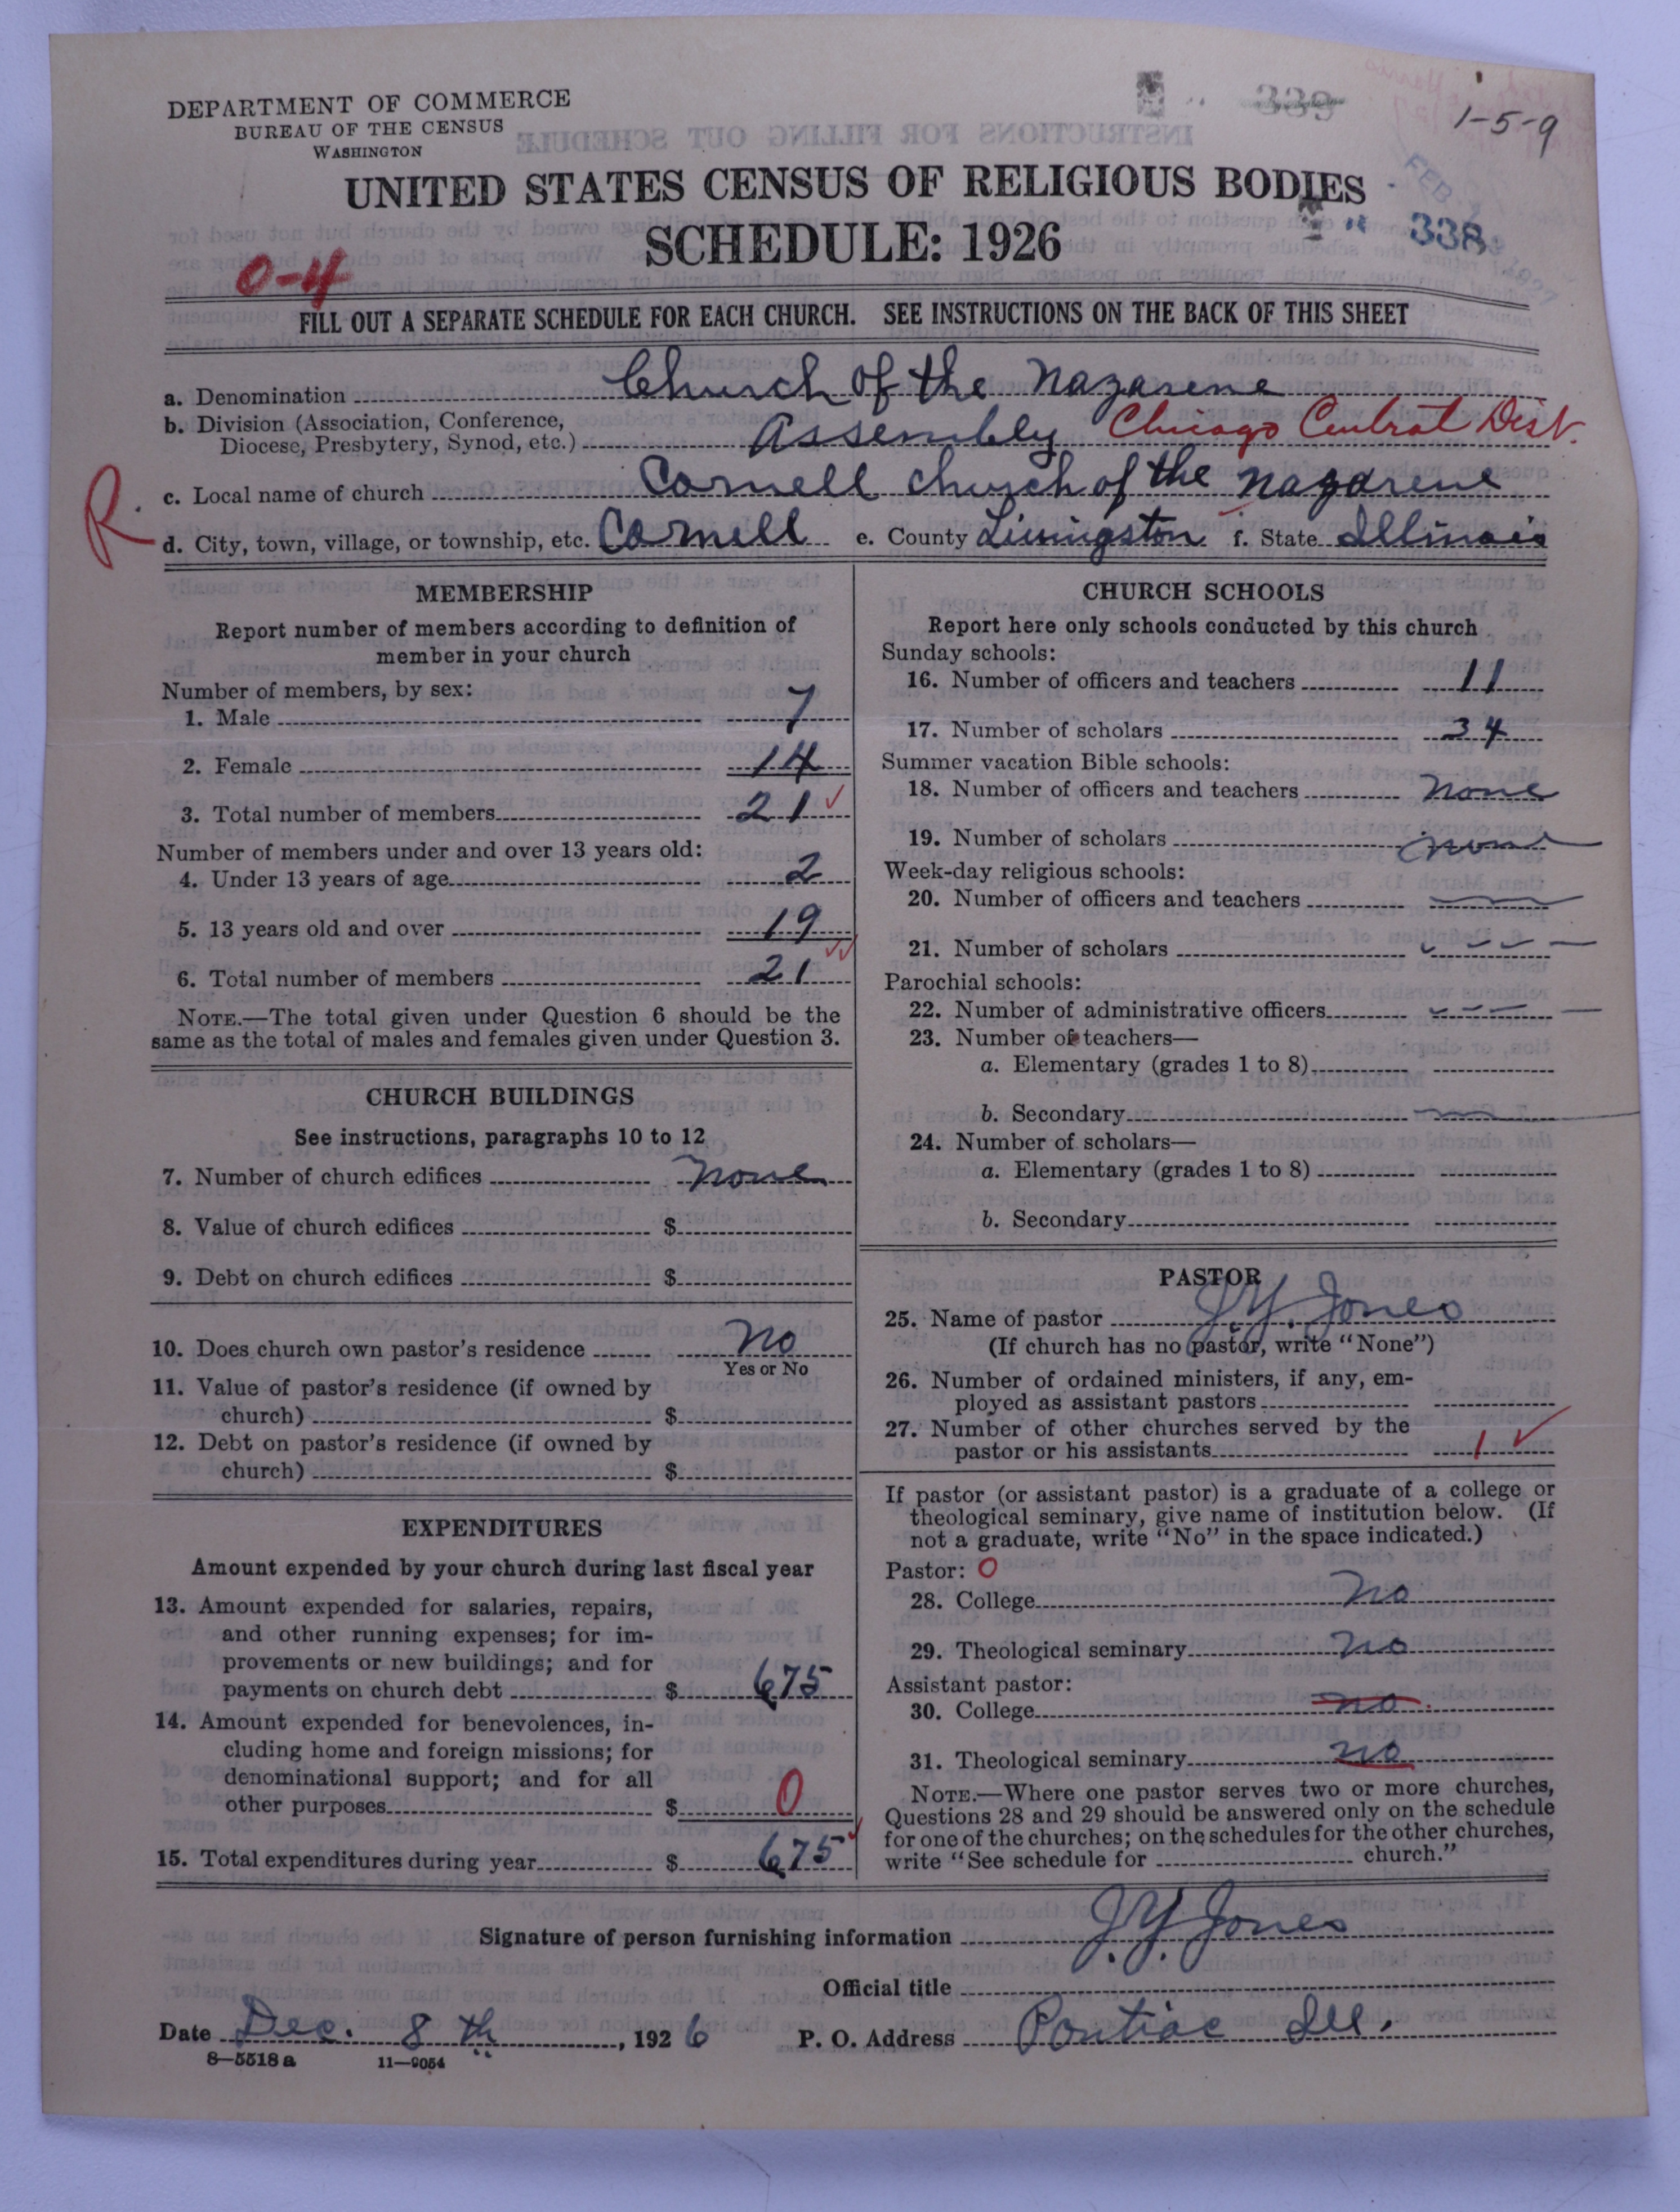 DEPARTMENT OF COMMERCE
BUREAU OF THE CENSUS
WASHINGTON
339
1-5-9
UNITED STATES CENSUS OF RELIGIOUS BODIES
FEB
338
SCHEDULE: 1926
0-4
FILL OUT A SEPARATE SCHEDULE FOR EACH CHURCH. SEE INSTRUCTIONS ON THE BACK OF THIS SHEET
a. Denomination Church of the Nazarene
b. Division (Association, Conference,
Diocese, Presbytery, Synod, etc.) Assembly Chicago Central Dist.
R.
c. Local name of church Cornell church of the Nazarene
d. City, town, village, or township, etc. Cornell e. County Livingston f. State Illinois
MEMBERSHIP
Report number of members according to definition of
member in your church
Number of members, by sex:
1. Male 7
2. Female 14
3. Total number of members 21 ✓
Number of members under and over 13 years old:
4. Under 13 years of age 2
5. 13 years old and over 19
6. Total number of members 21 ✓✓
NOTE.—The total given under Question 6 should be the
same as the total of males and females given under Question 3.
CHURCH BUILDINGS
See instructions, paragraphs 10 to 12
7. Number of church edifices none
8. Value of church edifices $
9. Debt on church edifices $
10. Does church own pastor's residence No
Yes or No
11. Value of pastor's residence (if owned by
church) $
12. Debt on pastor's residence (if owned by
church) $
EXPENDITURES
Amount expended by your church during last fiscal year
13. Amount expended for salaries, repairs,
and other running expenses; for im-
provements or new buildings; and for
payments on church debt $ 675
14. Amount expended for benevolences, in-
cluding home and foreign missions; for
denominational support; and for all
other purposes $ 0
15. Total expenditures during year $ 675 ✓
CHURCH SCHOOLS
Report here only schools conducted by this church
Sunday schools:
16. Number of officers and teachers 11
17. Number of scholars 34
Summer vacation Bible schools:
18. Number of officers and teachers none
19. Number of scholars none
Week-day religious schools:
20. Number of officers and teachers
21. Number of scholars
Parochial schools:
22. Number of administrative officers
23. Number of teachers—
a. Elementary (grades 1 to 8)
b. Secondary
24. Number of scholars—
a. Elementary (grades 1 to 8)
b. Secondary
PASTOR
25. Name of pastor J. Y. Jones
(If church has no pastor, write "None")
26. Number of ordained ministers, if any, em-
ployed as assistant pastors
27. Number of other churches served by the
pastor or his assistants 1 ✓
If pastor (or assistant pastor) is a graduate of a college or
theological seminary, give name of institution below. (If
not a graduate, write "No" in the space indicated.)
Pastor: 0
28. College No
29. Theological seminary No
Assistant pastor:
30. College no
31. Theological seminary no
NOTE.—Where one pastor serves two or more churches,
Questions 28 and 29 should be answered only on the schedule
for one of the churches; on the schedules for the other churches,
write "See schedule for church."
Signature of person furnishing information J. Y. Jones
Official title
Date Dec. 8 th, 1926 P. O. Address Pontiac Ill.
8—5518 a 11—9054